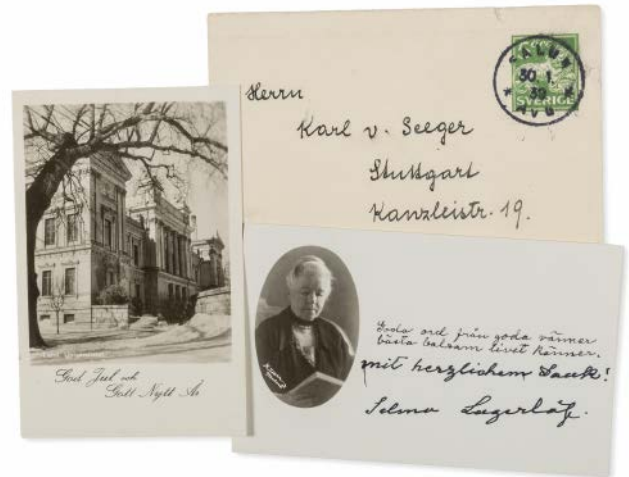 FALUN
30. 1.
39
SVERIGE
Herrn
Karl v. Seeger
Stuttgart
Kanzleistr. 19.
God Jul och
Gott Nytt År
Goda ord från goda vänner
bästa balsam livet känner.
mit herzlichem Dank!
Selma Lagerlöf.